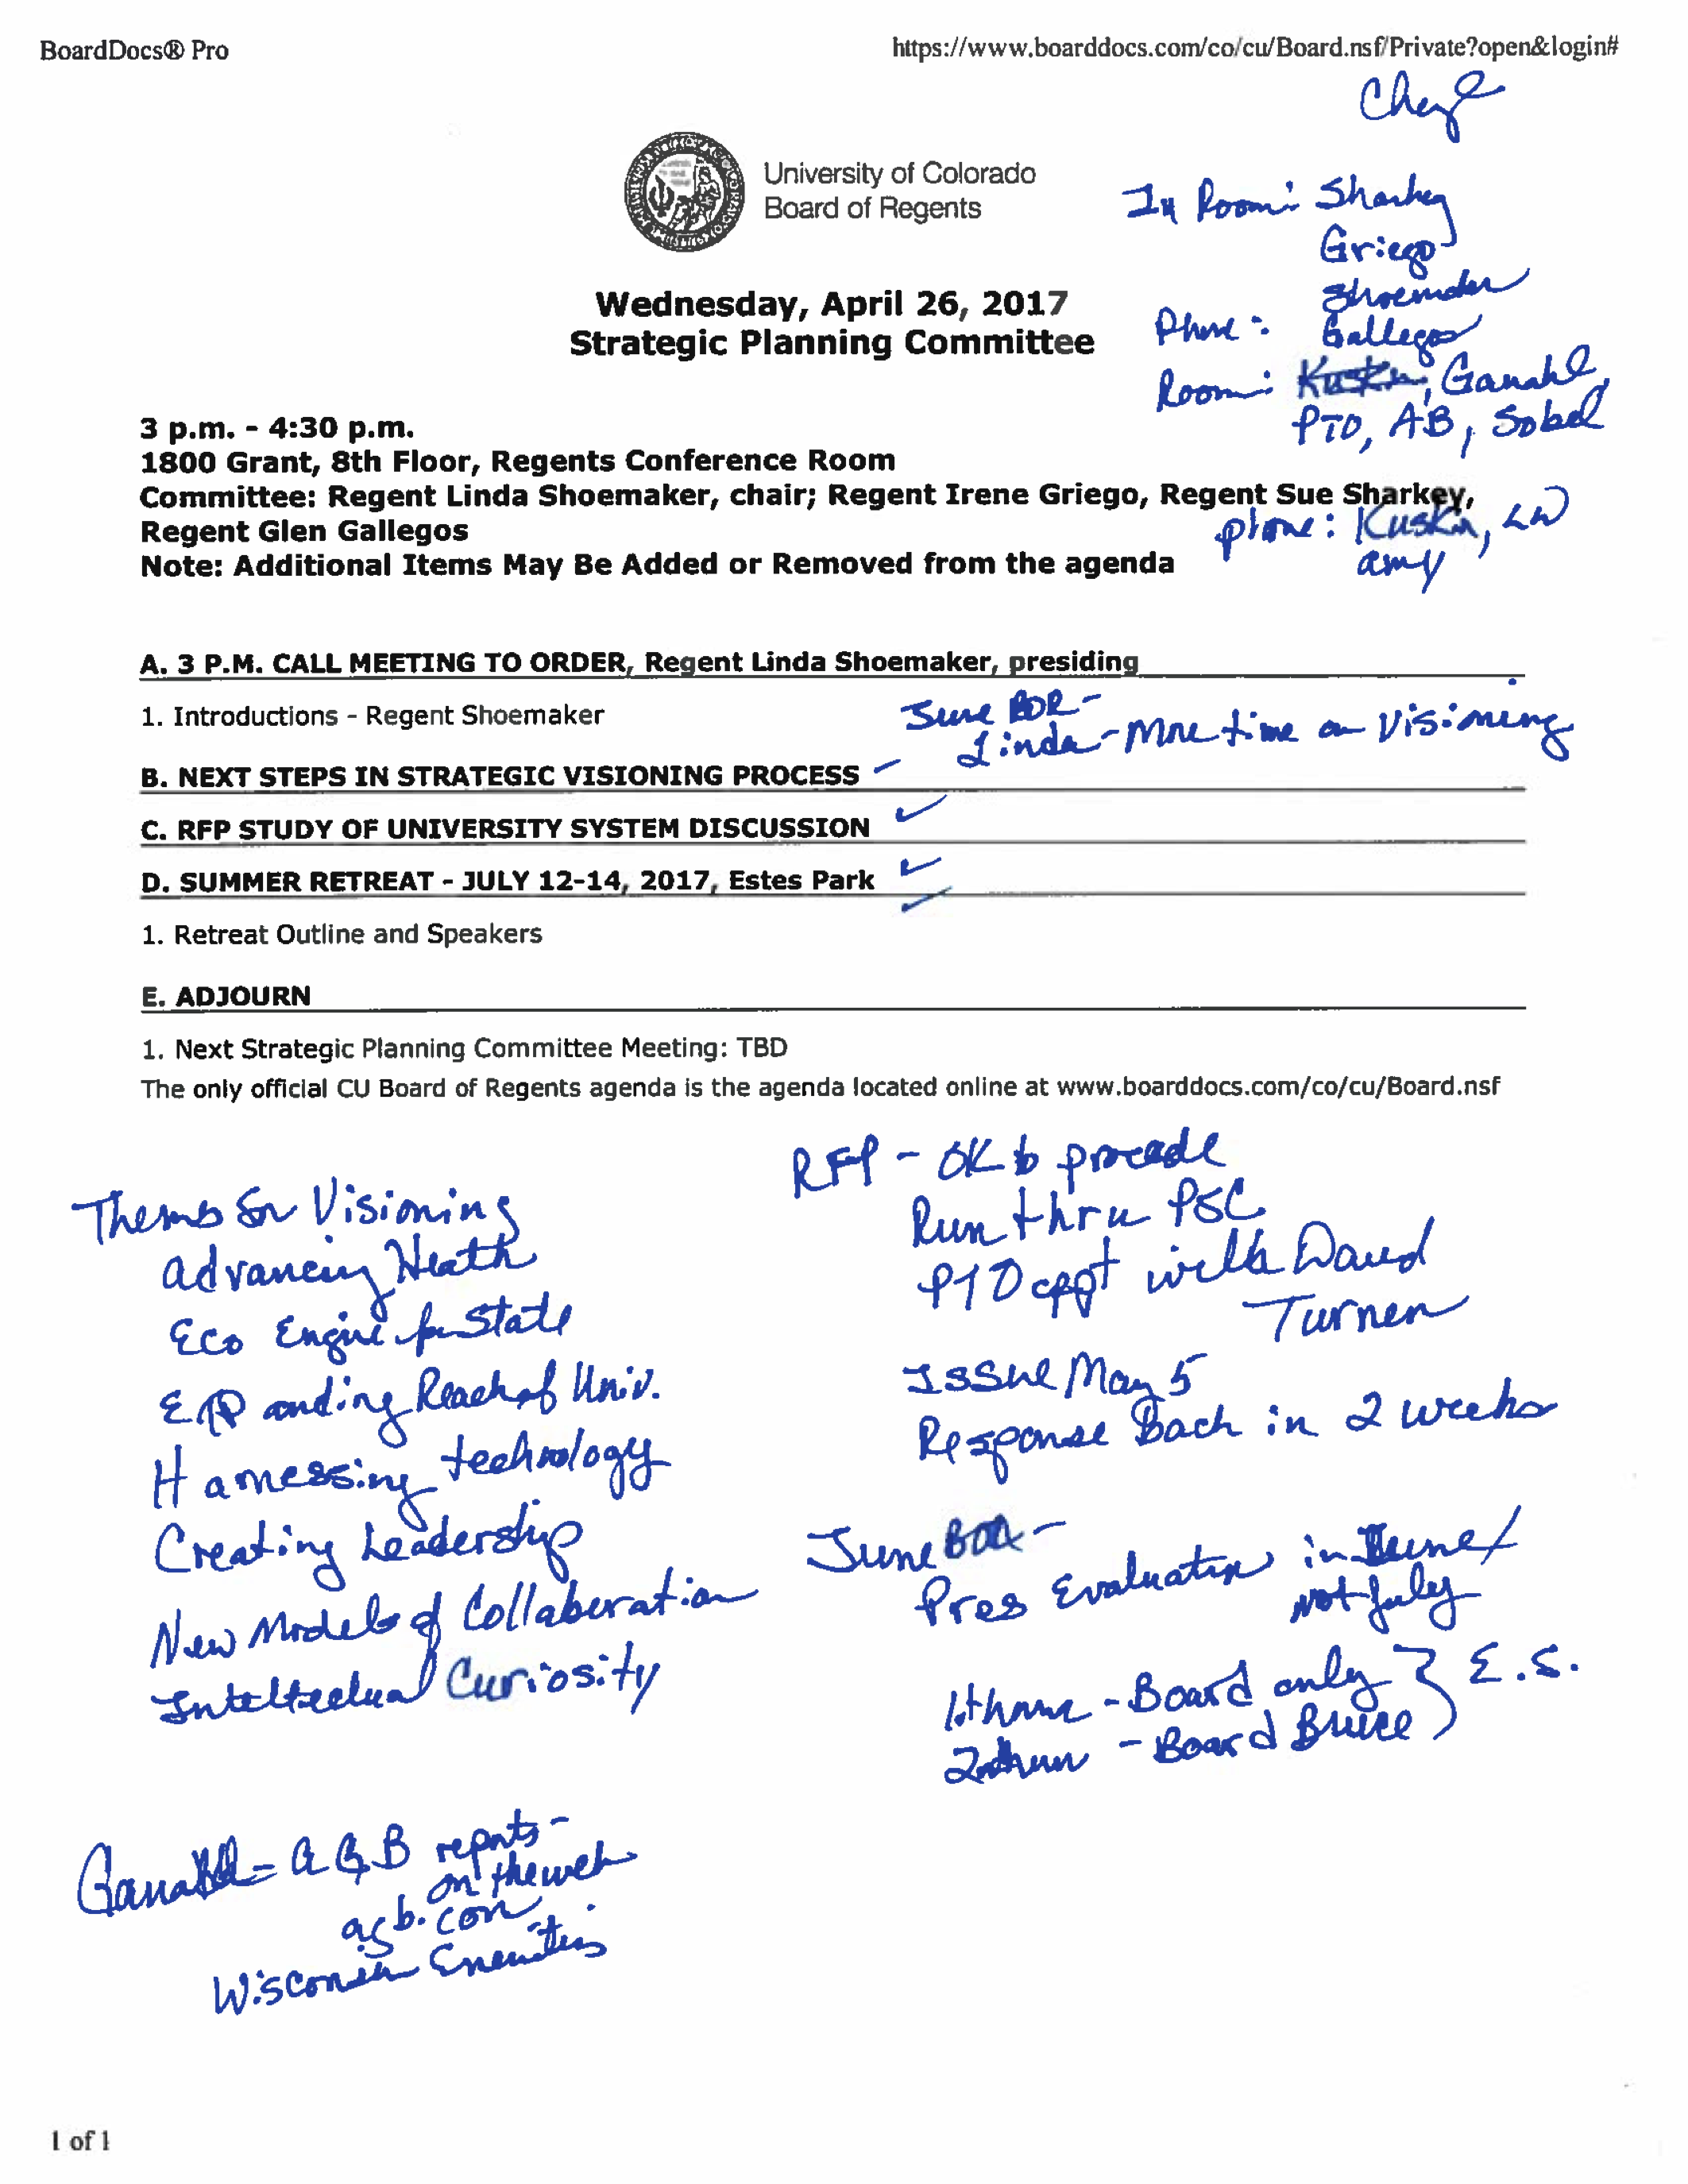 BoardDocs® Pro
https://www.boarddocs.com/co/cu/Board.nsf/Private?open&login#
Cheryl
University of Colorado
Board of Regents
In Room: Sharkey
Griego
Shoemaker
Phone: Gallegos
Room: Kuskin, Ganahl,
PTO, AB, Sobel
Wednesday, April 26, 2017
Strategic Planning Committee
3 p.m. - 4:30 p.m.
1800 Grant, 8th Floor, Regents Conference Room
Committee: Regent Linda Shoemaker, chair; Regent Irene Griego, Regent Sue Sharkey,
Regent Glen Gallegos
phone: Kuskin, LW
Amy
Note: Additional Items May Be Added or Removed from the agenda
A. 3 P.M. CALL MEETING TO ORDER, Regent Linda Shoemaker, presiding
1. Introductions - Regent Shoemaker
June BOR -
Linda - More time on Visioning
B. NEXT STEPS IN STRATEGIC VISIONING PROCESS
C. RFP STUDY OF UNIVERSITY SYSTEM DISCUSSION
D. SUMMER RETREAT - JULY 12-14, 2017, Estes Park
1. Retreat Outline and Speakers
E. ADJOURN
1. Next Strategic Planning Committee Meeting: TBD
The only official CU Board of Regents agenda is the agenda located online at www.boarddocs.com/co/cu/Board.nsf
Themes for Visioning
Advancing Heath
Eco Engine for State
Expanding Reach of Univ.
Harnessing technology
Creating Leadership
New Models of Collaboration
Intellectual Curiosity
RFP - OK to procede
Run thru PSC
PTO appt with David
Turner
Issue May 5
Response Back in 2 weeks
June BOR -
Pres Evaluation in June/
not July
1st hour - Board only } E.S.
2nd hour - Board Bruce
Ganahl - AGB reports -
on the web
agb.com
Wisconsin
1 of 1